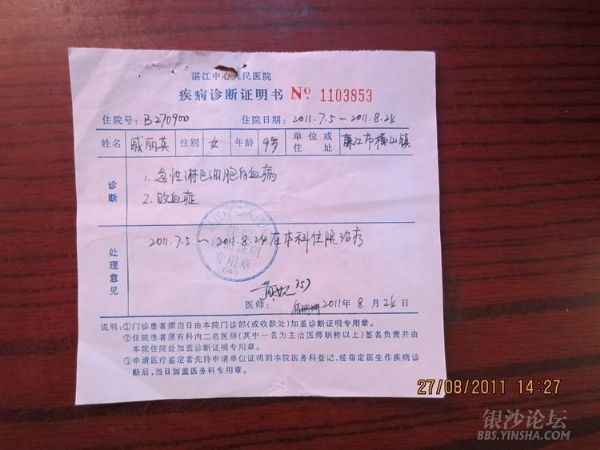 湛江中心人民医院
疾病诊断证明书 Nº 1103853
住院号: B270900 住院日期: 2011.7.5—2011.8.24
姓名 戚丽英 性别 女 年龄 9岁 单位或住址 廉江市横山镇
诊断
1. 急性淋巴细胞白血病
2. 败血症
处理意见
2011.7.5—2011.8.24在本科住院治疗
专用章
医师: 2011年 8月 24日
说明:①门诊患者须当日由本院门诊部(或收款处)加盖诊断证明专用章。
②住院患者须有科内二名医师(其中一名为主治医师职称以上)签名负责并由
本院住院处加盖诊断证明专用章。
③申请医疗鉴定者先持申请单位证明到本院医务科登记,经指定医生作疾病诊
断后,当日加盖医务科专用章。
27/08/2011 14:27
银沙论坛
BBS.YINSHA.COM